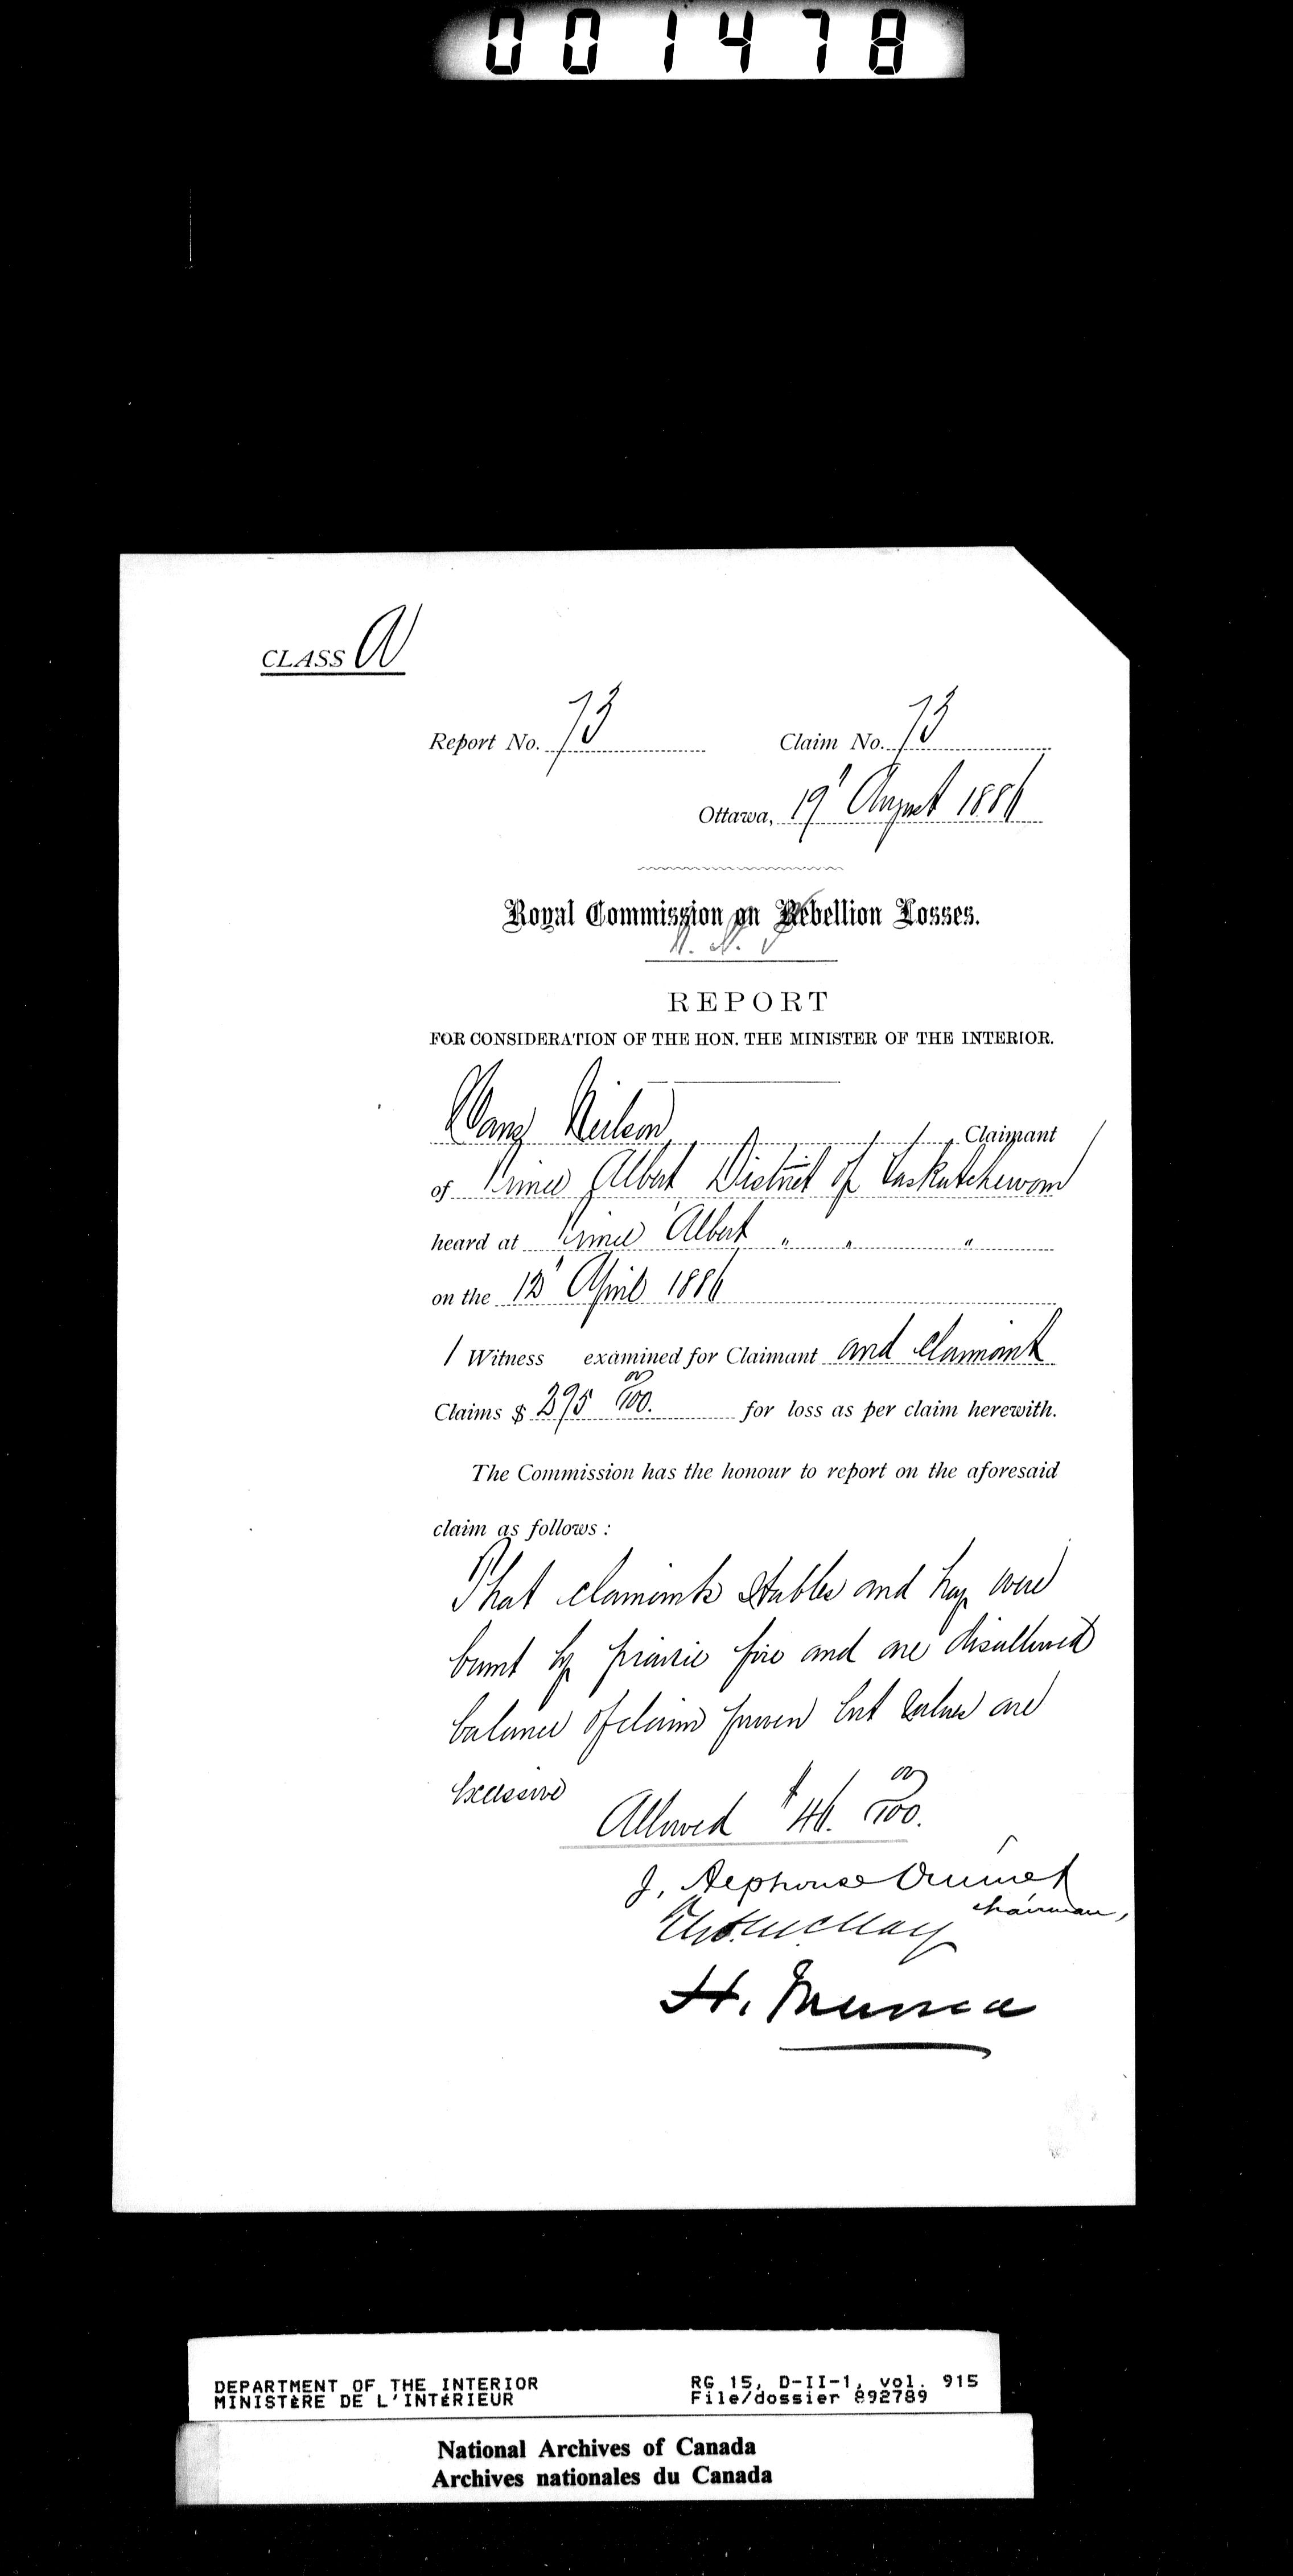 001478
CLASS A
Report No. 73 Claim No. 73
Ottawa, 19" August 1886
Royal Commission on Rebellion Losses.
REPORT
FOR CONSIDERATION OF THE HON. THE MINISTER OF THE INTERIOR.
Hans Neilson Claimant
of Prince Albert District of Saskatchewan
heard at Prince Albert " " "
on the 12" April 1886
1 Witness examined for Claimant and Claimant
Claims $ 295 00/100. for loss as per claim herewith.
The Commission has the honour to report on the aforesaid
claim as follows :
That claimants stables and hay were
burnt by prairie fire and are disallowed
balance of claim proven but values are
excessive
Allowed $46. 00/100.
J. Alphonse Ouimet
Chairman,
Tho. McKay
H. Muma
DEPARTMENT OF THE INTERIOR RG 15, D-II-1, vol. 915
MINISTÈRE DE L'INTÉRIEUR File/dossier 892789
National Archives of Canada
Archives nationales du Canada